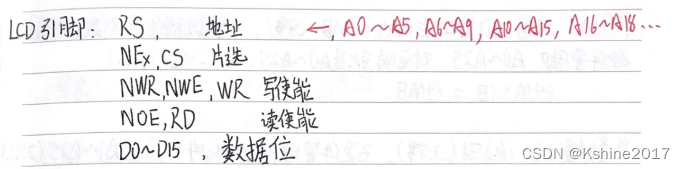 LCD引脚: RS 地址 ←, A0~A5, A6~A9, A10~A15, A16~A18...
NEx, CS 片选
NWR, NWE, WR 写使能
NOE, RD 读使能
D0~D15, 数据位
CSDN @Kshine2017